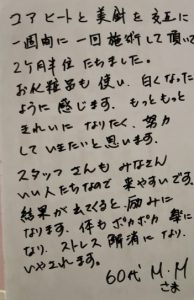 コアヒートと美鍼を交互に
一週間に一回施術して頂いて
2ヶ月半位たちました。
お化粧品も使い、白くなった
ように感じます。もっともっと
きれいになりたく、努力
していきたいと思います。
スタッフさんもみなさん
いい人たちなので来やすいです。
結果が出てくると、励みに
なります。体もポカポカ楽に
なり、ストレス解消になり、
いやされます。
60代 M・M
さま